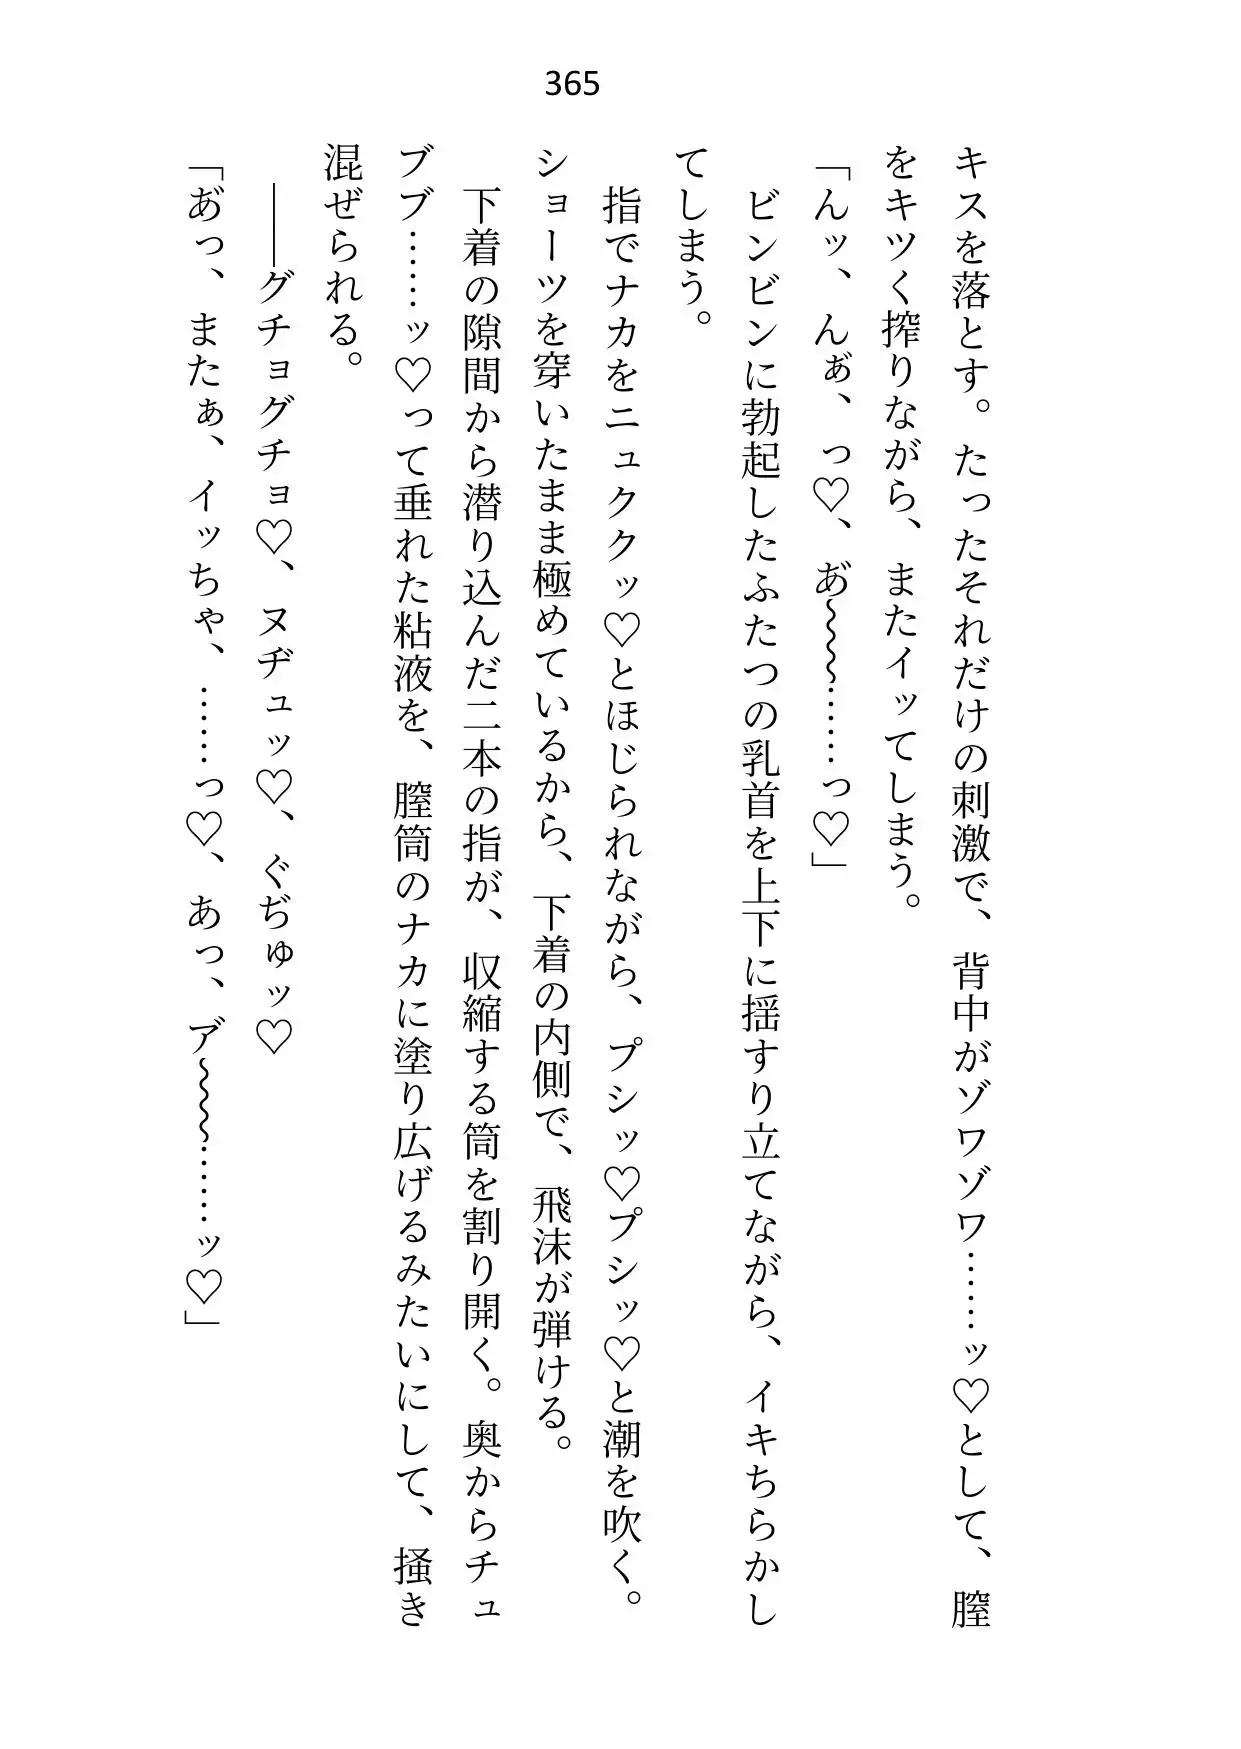 365
キスを落とす。たったそれだけの刺激で、背中がゾワゾワ……ッ♡として、膣
をキツく搾りながら、またイッてしまう。
「んッ、んぁ゙、っ♡、あ゙〜〜〜……っ♡」
ビンビンに勃起したふたつの乳首を上下に揺すり立てながら、イキちらかし
てしまう。
指でナカをニュククッ♡とほじられながら、プシッ♡プシッ♡と潮を吹く。
ショーツを穿いたまま極めているから、下着の内側で、飛沫が弾ける。
下着の隙間から潜り込んだ二本の指が、収縮する筒を割り開く。奥からチュ
ブブ……ッ♡って垂れた粘液を、膣筒のナカに塗り広げるみたいにして、掻き
混ぜられる。
――グチョグチョ♡、ヌヂュッ♡、ぐぢゅッ♡
「あ゙っ、またぁ、イッちゃ、……っ♡、あっ、ア゙〜〜〜……ッ♡」